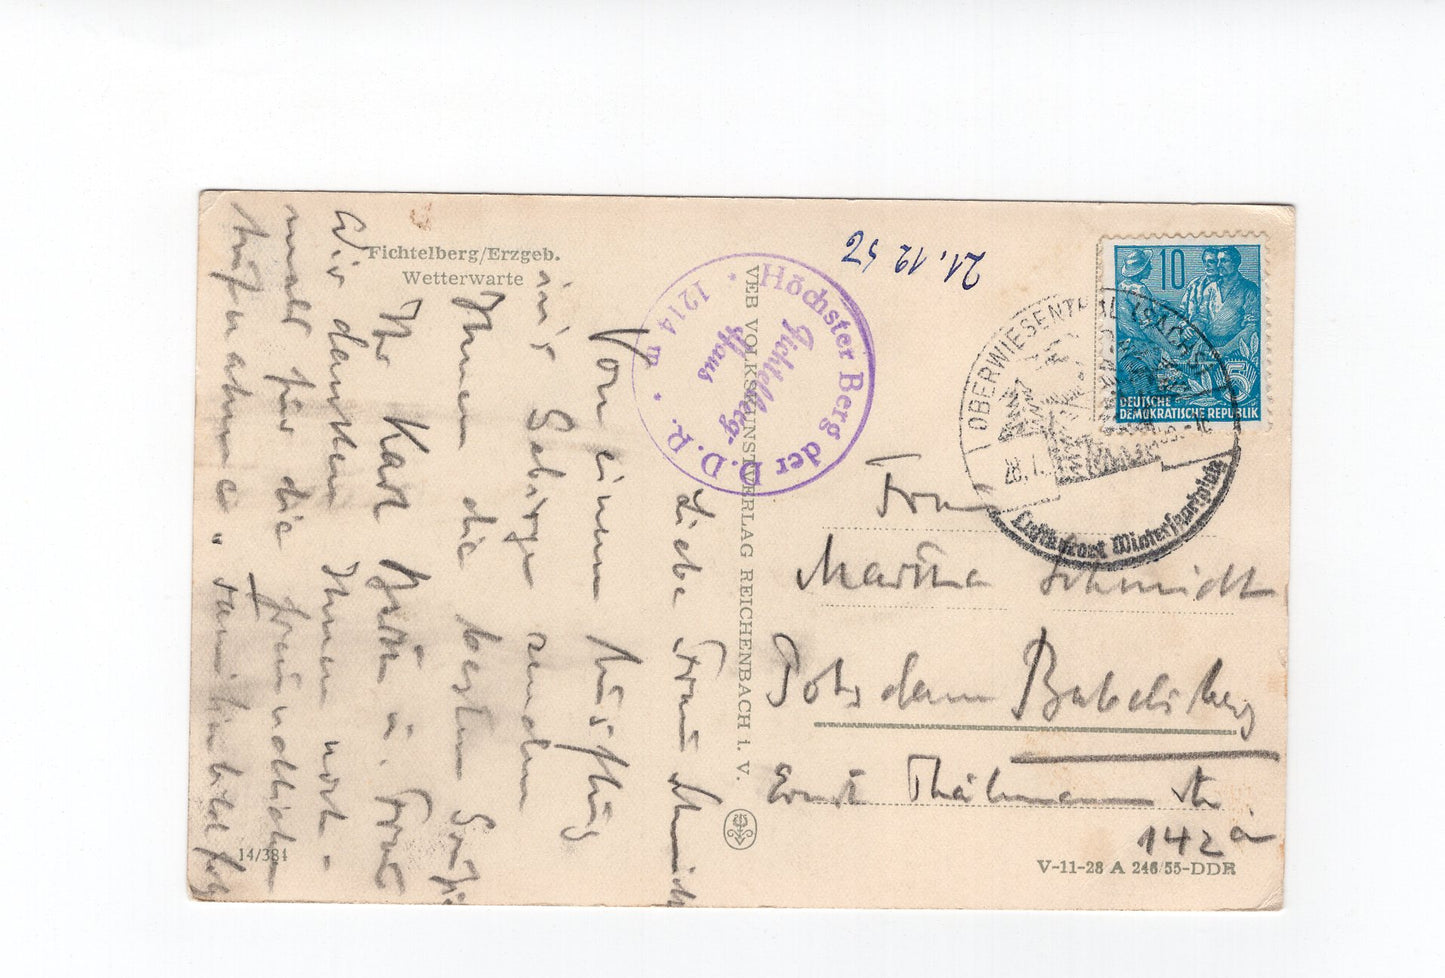 Fichtelberg/Erzgeb.
Wetterwarte
21.12.57
Höchster Berg der D.D.R. * 1214 m *
Fichtelberg-
Haus
VEB VOLKSKUNSTVERLAG REICHENBACH I. V.
10
5
DEUTSCHE
DEMOKRATISCHE REPUBLIK
OBERWIESENTHAL (SACHS)
28.
Luftkurort Wintersportplatz
Liebe Frau Schmidt
Von einem Ausflug
in's Gebirge senden
Ihnen die besten Grüße
Ihr Karl u. Frau
Wir danken Ihnen noch-
mals für die freundliche
Aufnahme
Frau
Martha Schmidt
Potsdam Babelsberg
Ernst Thälmann Str
142 a
14/384
V-11-28 A 246/55-DDR